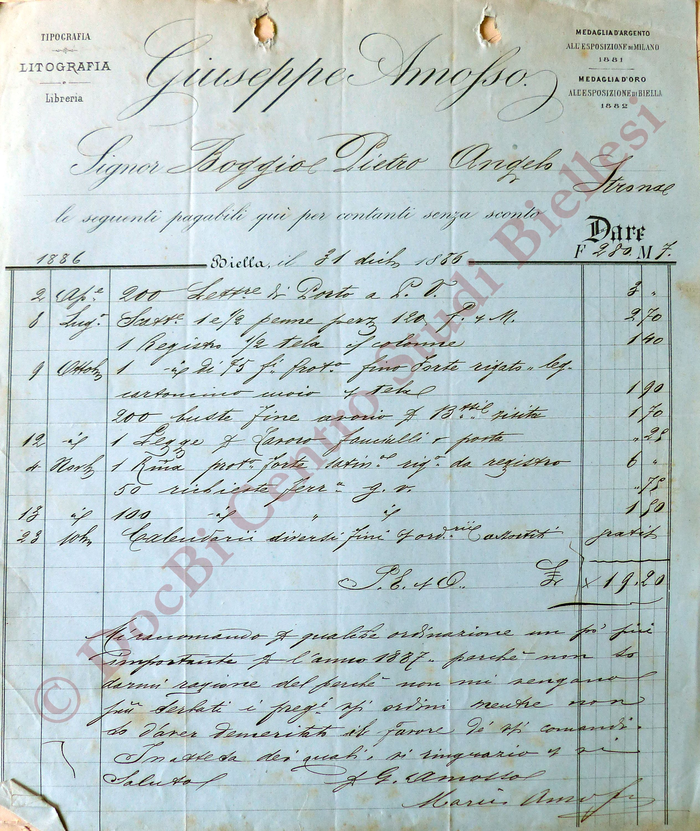 TIPOGRAFIA
LITOGRAFIA
Libreria
Giuseppe Amosso.
MEDAGLIA D'ARGENTO
ALL'ESPOSIZIONE DI MILANO
1881
MEDAGLIA D'ORO
ALL'ESPOSIZIONE DI BIELLA
1882
Signor Boggio Pietro Angelo Strona
le seguenti pagabili qui per contanti senza sconto
Dare
1886 Biella, il 31 dicbr 1886 F 280 M 7.
2 Aple 200 Lettre di Porto a P. V. 3 "
8 Lugo 1 e 1/2 penne 120 F. & M. 2 70
1 Registro 1/2 tela colonne 1 40
9 Ottobr 1 id di 75 fi Proto fino forte rigato leg.
cartoncino uso tela 1 90
200 buste fine avorio visita 1 70
12 id 1 Legge Lavoro fanciulli e porto " 25
4 Novbr 1 Risma proto forte rigo da registro 6 "
50 richieste ferra g. v. " 75
13 id 100 id " id 1 50
23 Xbre Calendarii diversi fini & ordrii assortiti gratis
S. E. & O. £ 19.20
Mi raccomando qualche ordinazione un pò più
importante l'anno 1887 perchè non so
darmi ragione del perchè non mi vengano
più serbati i pregi ordini mentre non
so d'aver demeritato il favore de' comandi.
In attesa dei quali, vi ringrazio e vi
Saluto G. Amosso
Mario Amosso
© DocBi Centro Studi Biellesi